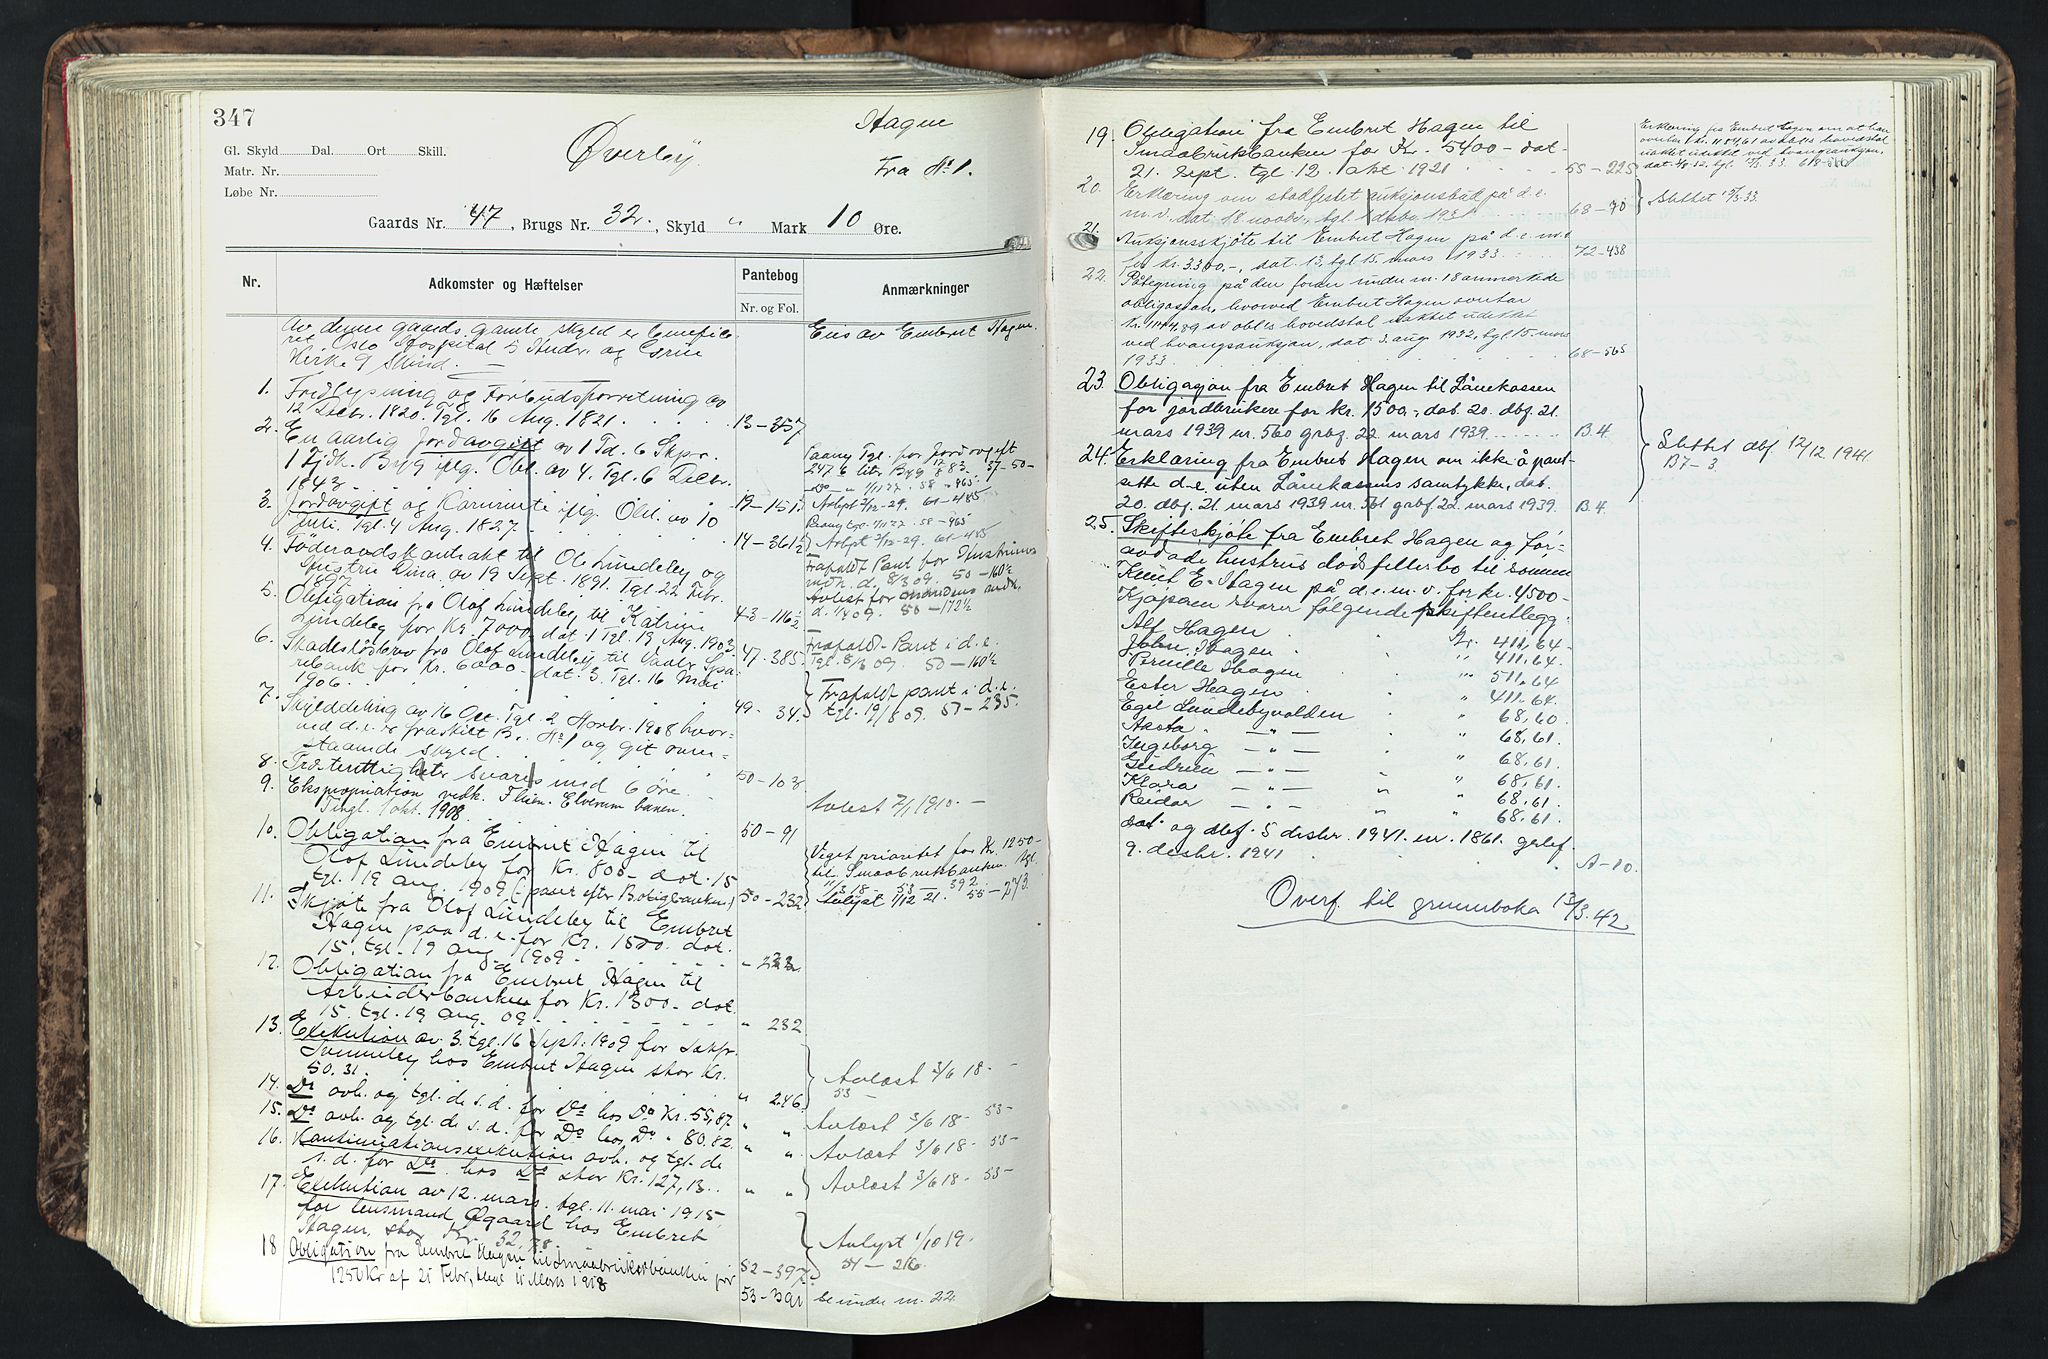 347
Gl. Skyld Dal. Ort Skill.
Matr. Nr.
Løbe Nr.
Øverby.
Hagen
Fra Nº 1.
Gaards Nr. 47, Brugs Nr. 32, Skyld " Mark 10 Øre.
Nr.
Adkomster og Hæftelser
Pantebog
Nr. og Fol.
Anmærkninger
Av denne gaards gamle skyld er benefice-
ret Oslo Hospital 5 Hudr. og
Kirke 9 Skind.
Eies av Embret Hagen.
1. Fredlysning og Forbudsforretning av
12 Decbr. 1820. Tgl. 16 Aug. 1821. 13-357
2. En aarlig Jordavgift av 1 Td. 6 Skpr.
1 Fjdk. Byg iflg. Obl. av 4. Tgl. 6 Decbr.
1843. 19-151
3. Jordavgift og iflg. Obl. av 10
Juli. Tgl. 4 Aug. 1827. 14-361½
4. Føderaadskontrakt til Ole Lundeby og
Hustru Dina, av 19 Sept. 1891. Tgl. 22 Febr.
1897. 43-116½
Frafaldt Pant for Hustruens
vedk. d. 8/3 09. 50-160½
Avlest for mandens vedk.
d. 1/4 09. 50-172½
5. Obligation fra Olof Lundeby til Katrine
Lundeby for Kr. 7000, dat. 1 Tgl. 19 Aug. 1903. 47-385
Frafaldt Pant i d.e.
Tgl. 8/3 09. 50-160½
6. Skadesløsbrev fra Olof Lundeby til Vaaler Spa-
rebank for Kr. 6000 dat. 3. Tgl. 16 Mai
1906. 49-34.
Frafaldt pant i d.e.
tgl. 19/8 09. 50-235.
7. Skylddeling av 16 Oct. Tgl. 2 Novbr. 1908 hvor-
ved d.e. er fraskilt Br. Nº 1 og git oven-
staaende skyld. 50-103
8. svares med 6 øre.
9. Ekspropriation vedk. Flisen-Elverum banen.
Tingl. 1 okt. 1908. 50-91
Avlest 7/1 1910.
10. Obligation fra Embret Hagen til
Olof Lundeby for Kr. 800- dat. 15
tgl. 19 aug. 1909 (pant efter Boligbanken) 50-232
Veget prioritet for Kr. 1250-
til Smaabrukbanken. tgl.
11/3 18- 53-392
Avlyst 1/12 21. 55-273.
11. Skjøte fra Olof Lundeby til Embret
Hagen paa d.e. for Kr. 1500 dat.
15. tgl. 19 aug. 1909 " 232
12. Obligation fra Embret Hagen til
Arbeiderbanken for Kr. 1300- dat.
15. tgl. 19 aug. 09. " 232
13. Exekution av 3. tgl. 16 Sept. 1909 for Sakfr.
hos Embret Hagen stor Kr.
50.31. " 246.
Avlæst 3/6 18-
53-
14. Dº avh. og tgl. de s.d. for Dº hos Dº Kr. 55,87 " "
Avlæst 3/6 18- 53-
15. Dº avh. og tgl. de s.d. for Dº hos Dº " 80.82 " "
Avlæst 3/6 18- 53-
16. Kontinuationsexekution avh. og tgl. de
s.d. for Dº hos Dº stor Kr. 127,13. " "
Avlæst 3/6 18- 53-
17. Exekution av 12. mars. tgl. 11. mai 1915
for lensmand Øgaard hos Embret
Hagen, stor Kr. 32, 52-397
Avlyst 1/10 19-
54-216.
18 Obligation fra Embret Hagen til Smaabrukerbanken for
1250 Kr af 21 Febr., tingl 11 Marts 1918 53-391
Se under nr. 22.
19. Obligation fra Embret Hagen til
Smaabrukbanken for Kr. 5400- dat.
21. Sept. tgl. 12. okt. 1921 55-225
Erklæring fra Embret Hagen om at han
overtar kr. av obl.s hovedstol
uaktet udekket ved tvangsauksjon,
dat. 3/8 32, tgl. 15/3 33. 68-565
20. Erklæring om stadfestet auksjonsbud på d.e.
m.v. dat. 18 novbr., tgl. 1 desbr. 1931. 68-70
Slettet 15/3.33.
21. Auksjonsskjøte til Embret Hagen på d.e. m.v.
for kr. 3.300.-, dat. 13, tgl. 15. mars 1933. 72-438
22. Påtegning på den foran under nr. 18 anmerkede
obligasjon, hvorved Embret Hagen overtar
Kr. av obl.s hovedstol uaktet udekket
ved tvangsauksjon, dat. 3. aug. 1932, tgl. 15. mars
1933. 68-565
23. Obligasjon fra Embret Hagen til Lånekassen
for jordbrukere for kr. 1500.-, dat. 20. dbf. 21.
mars 1939 nr. 560 grbf. 22. mars 1939. B.4.
Slettet dbf. 12/12 1941.
B7-3
24. Erklæring fra Embret Hagen om ikke å pant-
sette d.e. uten Lånekassens samtykke, dat.
20. dbf. 21. mars 1939 nr. 561 grbf. 22. mars 1939. B.4.
25. Skifteskjøte fra Embret Hagen og for=
avdøde hustrus dødsfellesbo til sønnen
Knut E. Hagen på d.e.m.v. for kr. 4500-
Kjøperen svarer følgende skifteutlegg:
Alf Hagen kr. 411,64.
Johan Hagen " 411,64.
Pernille Hagen " 511,64
Ester Hagen " 411,64.
Egil Lundebyvolden " 68,60
Aasta - " - " 68,61.
Ingeborg - " - " 68,61
Gudrun - " - " 68,61.
Klara - " - " 68,61.
Reidar - " - " 68,61.
dat. og dbf. 5 desbr. 1941. nr. 1861. grbf.
9. desbr. 1941 A-10.
Overf. til grunnboka 13/3.42